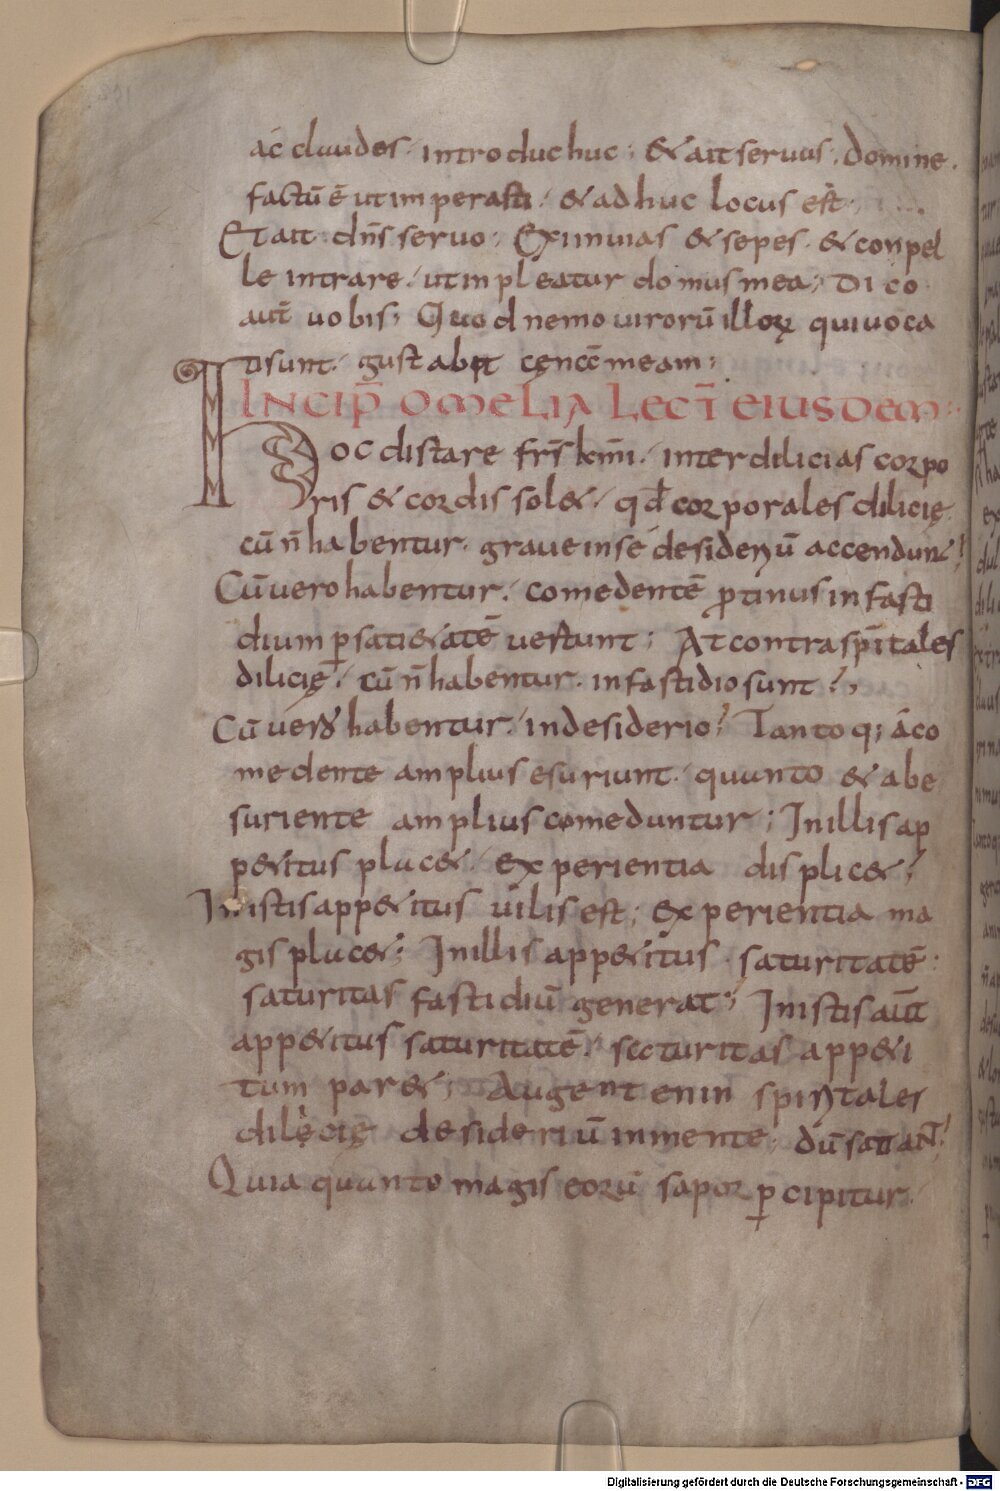 ac cludos· introduc huc; & ait seruus; domine·
factū ē ut imperasti· & adhuc locus est;
Et ait dn̄s seruo; Exi in uias & sepes· & conpel
le intrare· ut impleatur domus mea; Dico
aut̄ uobis; Quod nemo uirorū illoꝝ qui uoca
ti sunt· gustabit cęnā meam;
INCIP̄ OMELIA LECT̄ EIUSDEM:
Hoc distare fr̄s km̄i· inter dilicias corpo
ris & cordis sol&· qđ corporales dilicię
cū n̄ habentur· graue in se desideriū accendunt;
Cū uero habentur· comedentē protinus in fasti
dium ꝑ sati&atē uertunt; At contra sp̄itales
dilicię· cū n̄ habentur· in fastidio sunt;
Cū uero habentur· in desiderio; Tantoq; a co
medente amplius esuriunt· quanto & ab e
suriente amplius comeduntur; In illis ap
p&itus plac&· experientia displic&;
In istis app&itus uilis est; experientia ma
gis plac&; In illis app&itus saturitatē:
saturitas fastidiū generat; In istis aut̄
app&itus saturitatē· saturitas app&i
tum par&; Augent enin spiritales
dilicię desideriū in mente· dū satiant;
Quia quanto magis eorū sapor p̄cipitur·
Digitalisierung gefördert durch die Deutsche Forschungsgemeinschaft - DFG